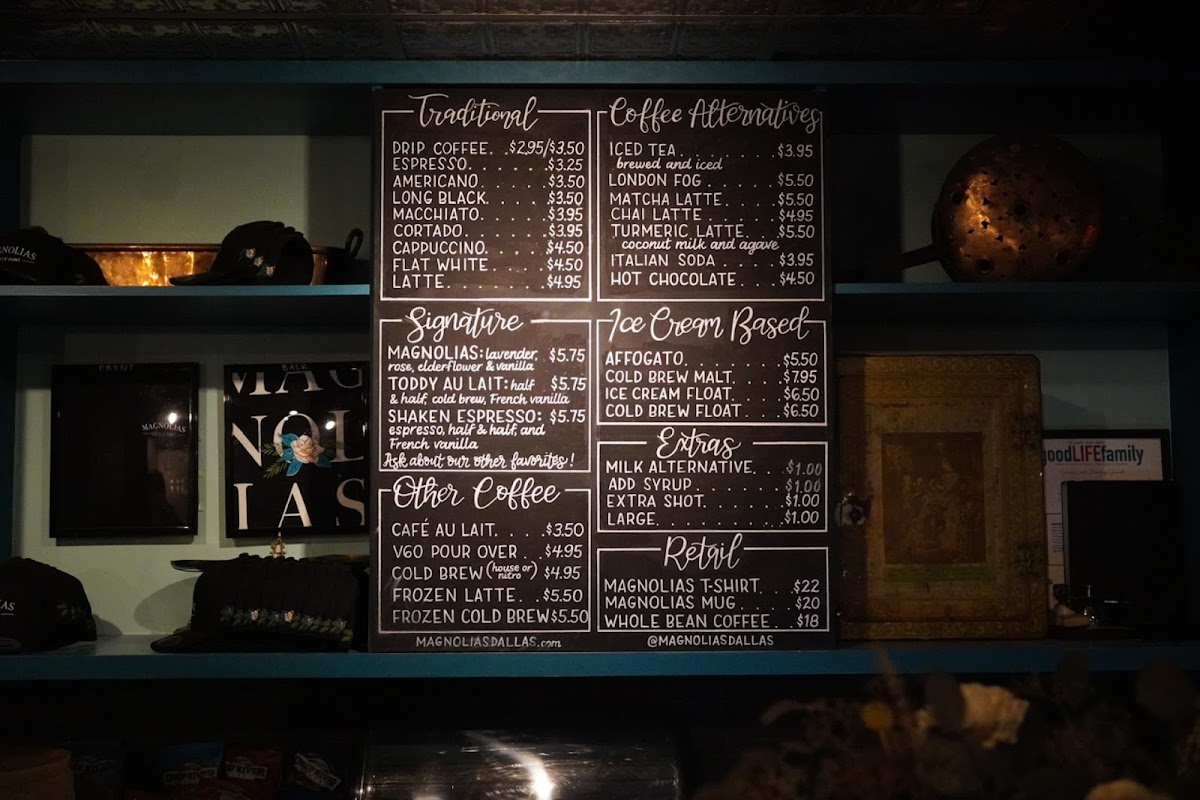 Traditional
DRIP COFFEE. .$2.95/$3.50
ESPRESSO. . . . . .$3.25
AMERICANO. . . . .$3.50
LONG BLACK. . . . .$3.50
MACCHIATO. . . . .$3.95
CORTADO. . . . . .$3.95
CAPPUCCINO. . . . .$4.50
FLAT WHITE. . . . .$4.50
LATTE. . . . . . .$4.95
Signature
MAGNOLIAS: lavender, $5.75
rose, elderflower & vanilla
TODDY AU LAIT: half $5.75
& half, cold brew, French vanilla
SHAKEN ESPRESSO: $5.75
espresso, half & half, and
French vanilla
Ask about our other favorites!
Other Coffee
CAFÉ AU LAIT. . . .$3.50
VGO POUR OVER . . .$4.95
COLD BREW (house or nitro) $4.95
FROZEN LATTE. . .$5.50
FROZEN COLD BREW $5.50
MAGNOLIASDALLAS.com
Coffee Alternatives
ICED TEA. . . . . . . .$3.95
brewed and iced
LONDON FOG . . . . .$5.50
MATCHA LATTE. . . . .$5.50
CHAI LATTE . . . . .$4.95
TURMERIC LATTE. . .$5.50
coconut milk and agave
ITALIAN SODA . . . .$3.95
HOT CHOCOLATE . . .$4.50
Ice Cream Based
AFFOGATO. . . . . . .$5.50
COLD BREW MALT. . . .$7.95
ICE CREAM FLOAT. . . .$6.50
COLD BREW FLOAT. . . .$6.50
Extras
MILK ALTERNATIVE. . .$1.00
ADD SYRUP. . . . . . .$1.00
EXTRA SHOT. . . . . .$1.00
LARGE. . . . . . . . .$1.00
Retail
MAGNOLIAS T-SHIRT. . .$22
MAGNOLIAS MUG. . . . .$20
WHOLE BEAN COFFEE. . .$18
@MAGNOLIASDALLAS
FRONT
MAGNOLIAS
BACK
MAG
NOL
IAS
goodLIFEfamily